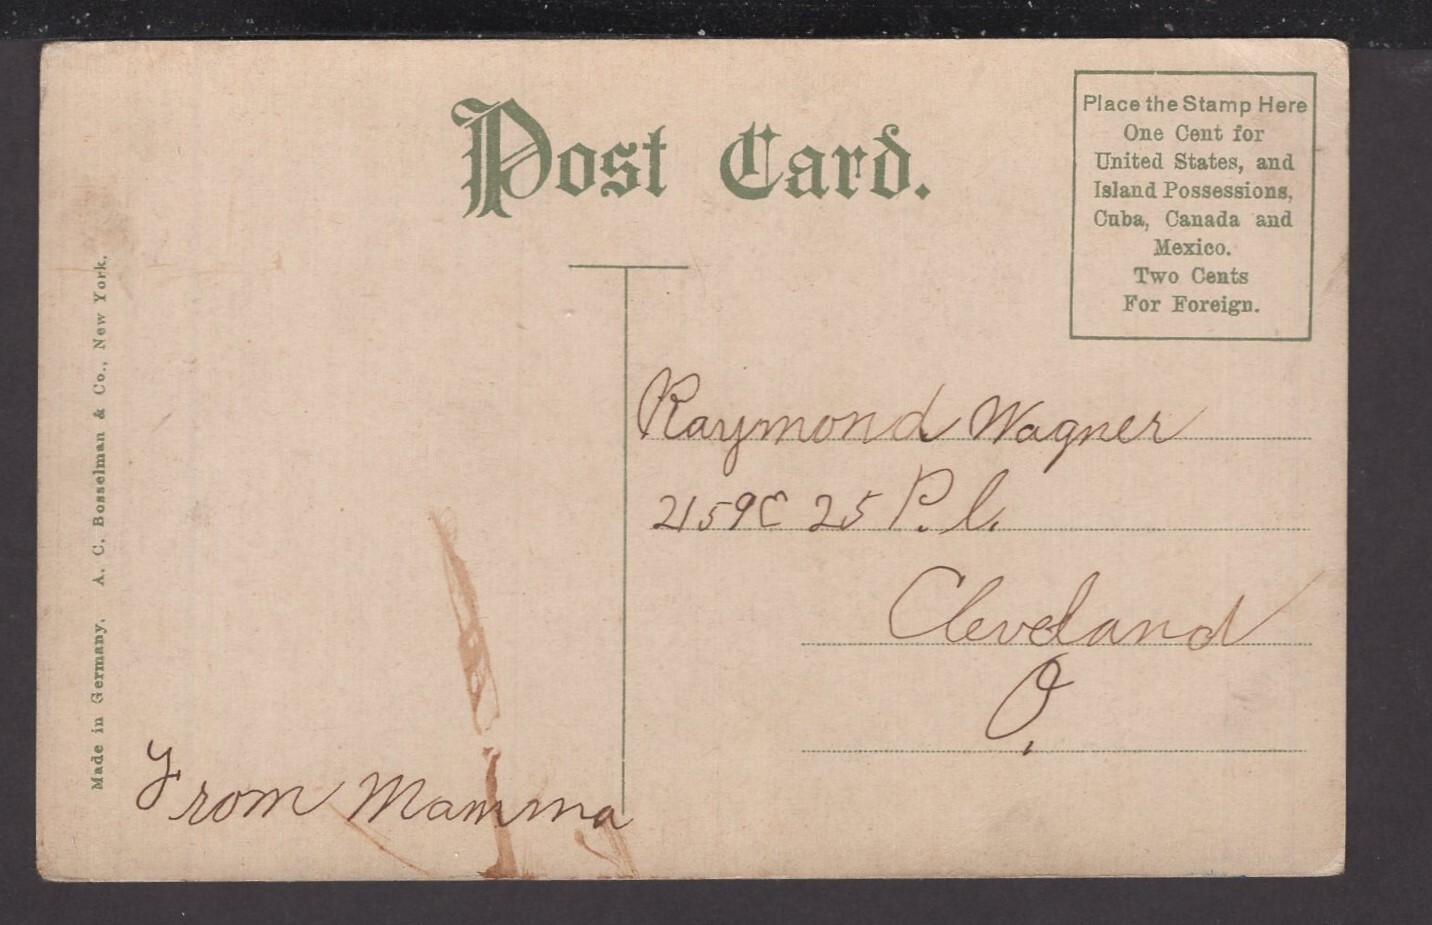 Post Card.
Place the Stamp Here
One Cent for
United States, and
Island Possessions,
Cuba, Canada and
Mexico.
Two Cents
For Foreign.
Made in Germany, A. C. Bosselman & Co., New York.
Raymond Wagner
2159 E 25 P.l.
Cleveland
O.
From Mamma